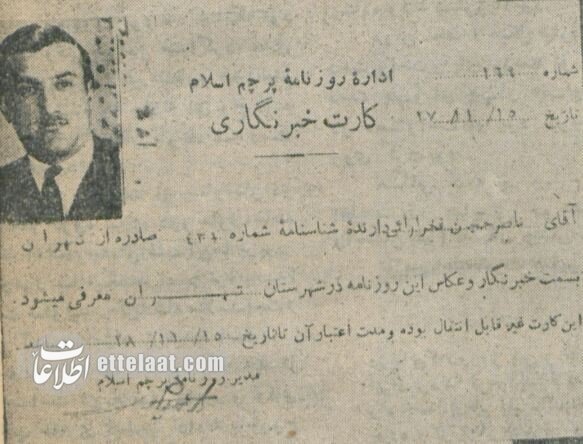 شماره ۱۶۴
ادارهٔ روزنامهٔ پرچم اسلام
تاریخ ۲۷/۱۱/۱۵
کارت خبرنگاری
آقای ناصر حسین فخرآرائی دارندهٔ شناسنامهٔ شماره صادره از تهران
بسمت خبرنگار و عکاس این روزنامه در شهرستان تهران معرفی میشود.
این کارت غیر قابل انتقال بوده و مدت اعتبار آن تا تاریخ ۲۸/۱۱/۱۵
مدیر روزنامه پرچم اسلام
اطلاعات ettelaat.com